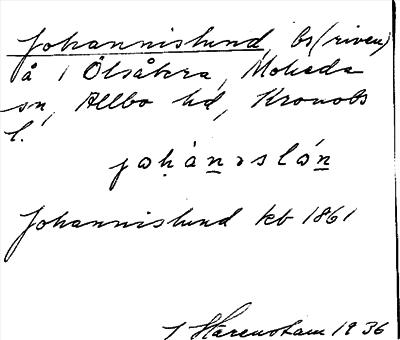 Johannislund, bs (riven)
å 1 Ölsåkra, Moheda
sn, Allbo hd, Kronobs
l.
johánəslón
Johannislund kb 1861
Harensham 1936